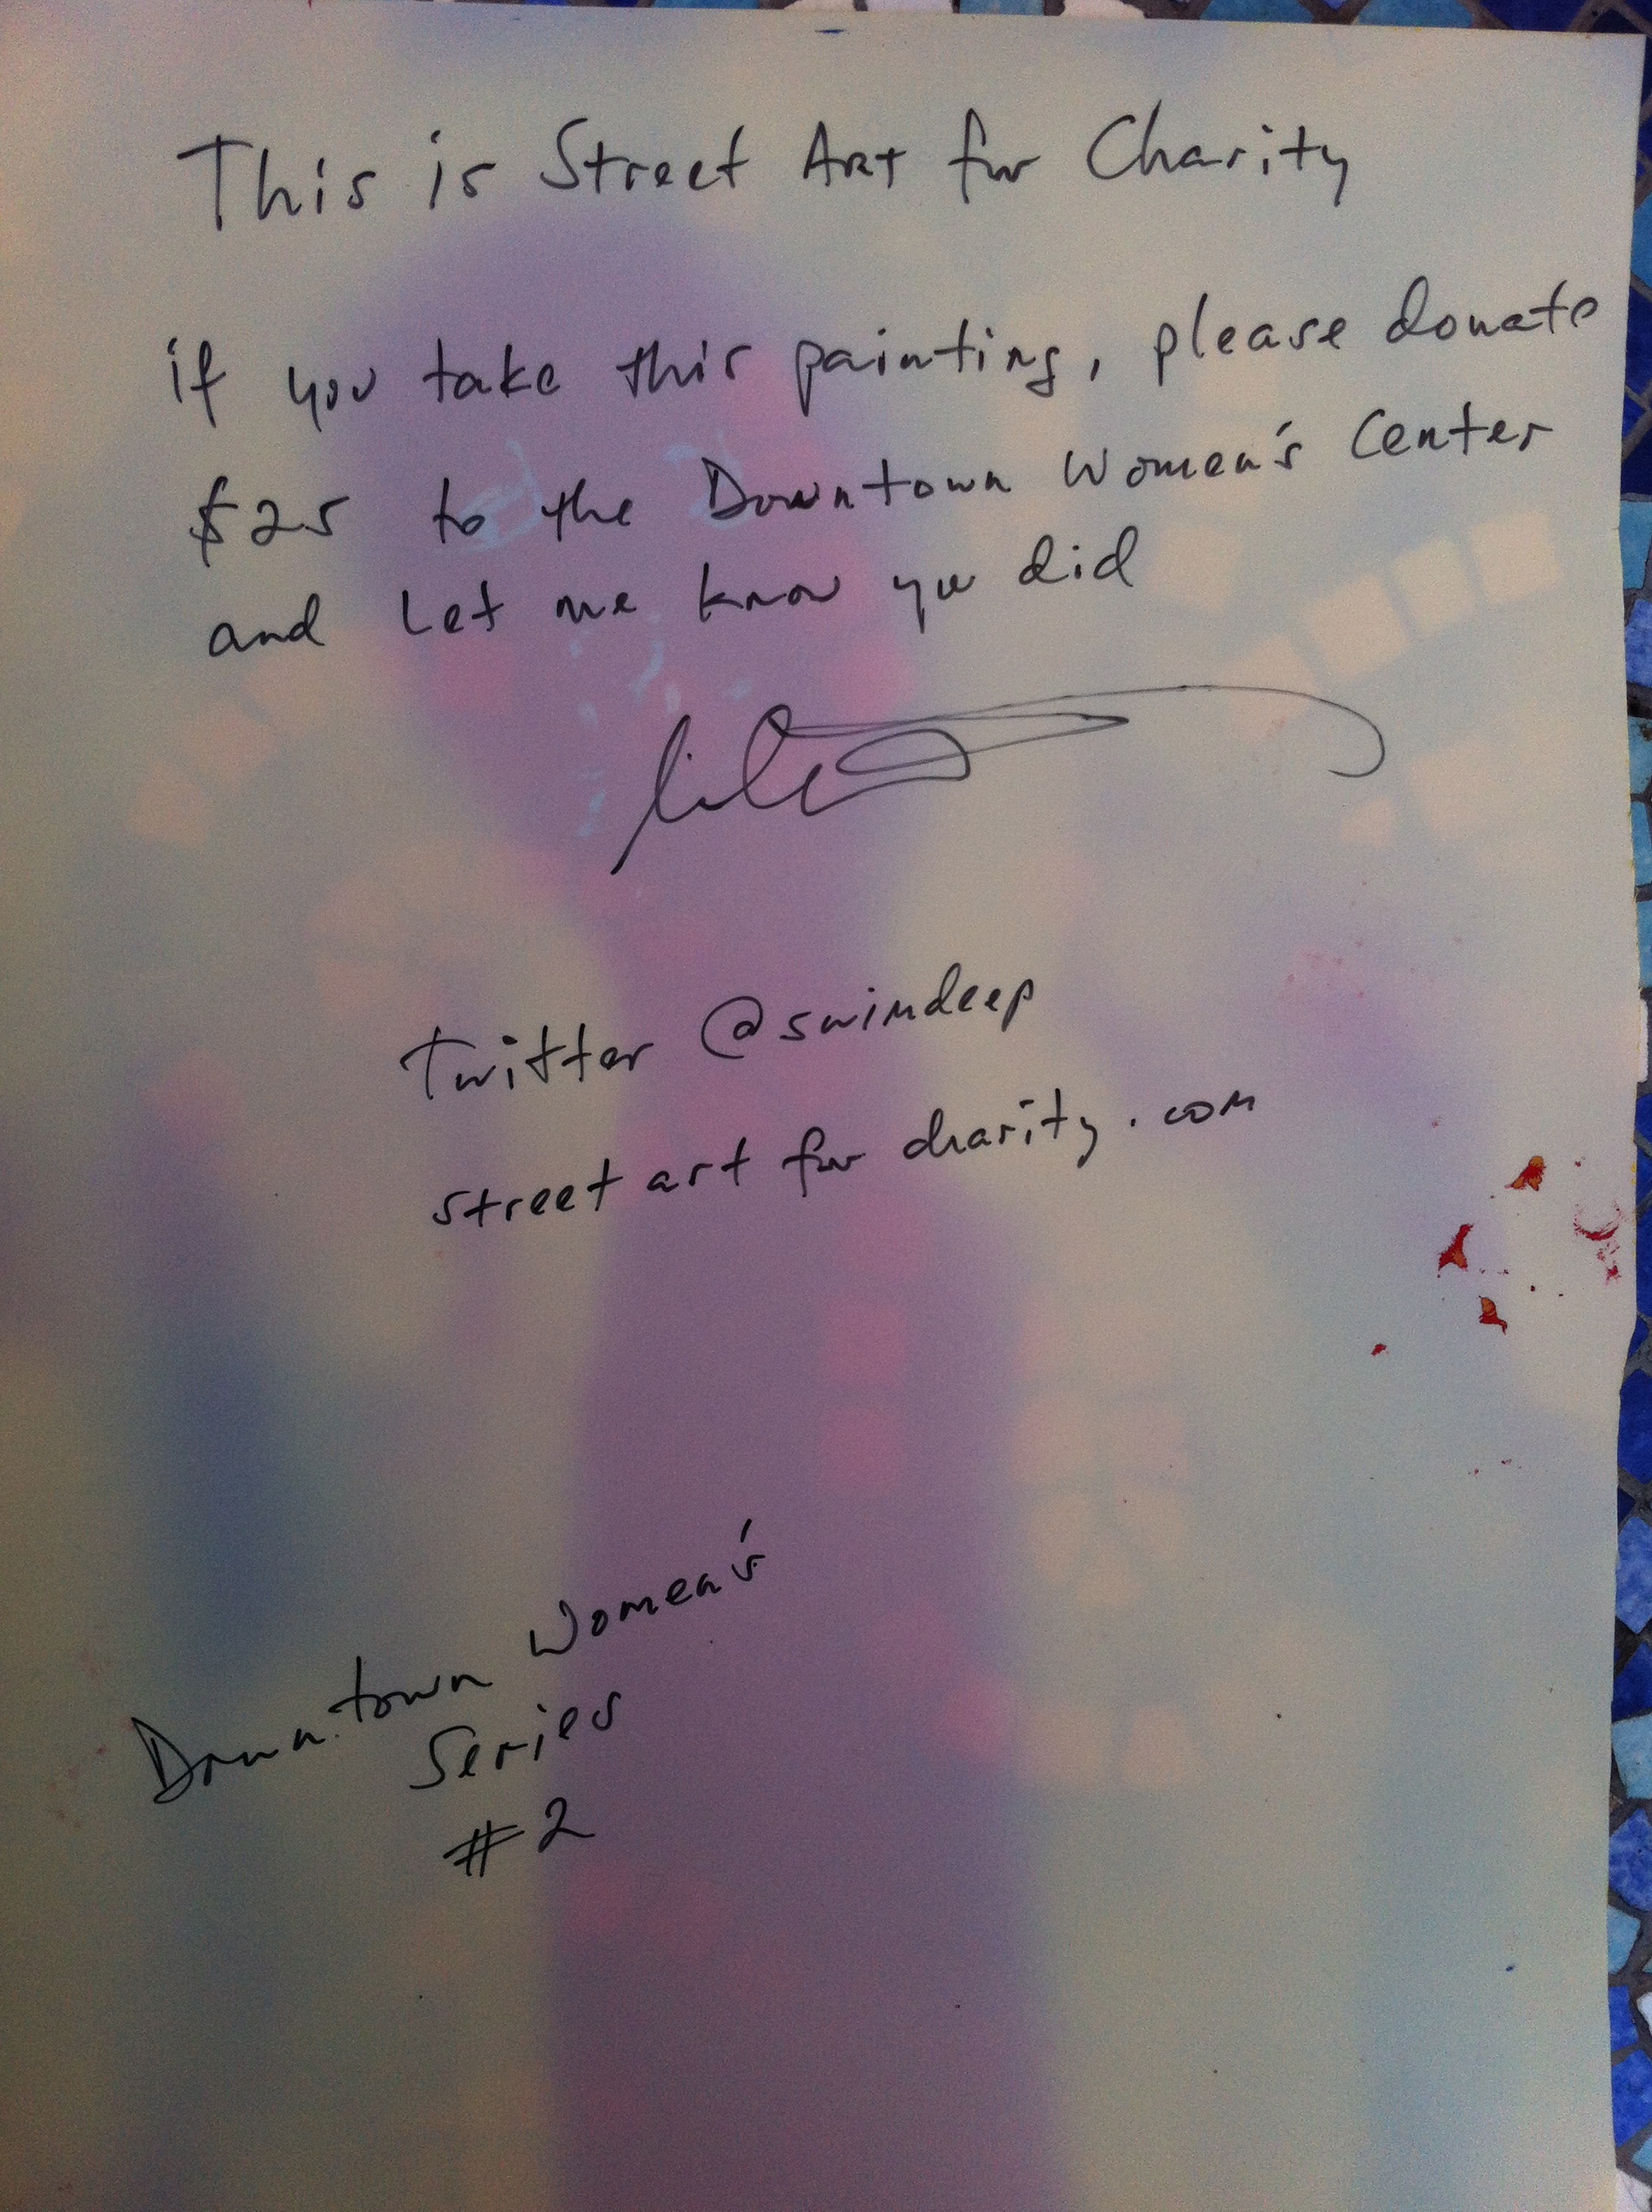 This is Street Art for Charity
if you take this painting, please donate
$25 to the Downtown Women's Center
and Let me know you did
Twitter @swimdeep
street art for charity.com
Downtown Women's
Series
#2